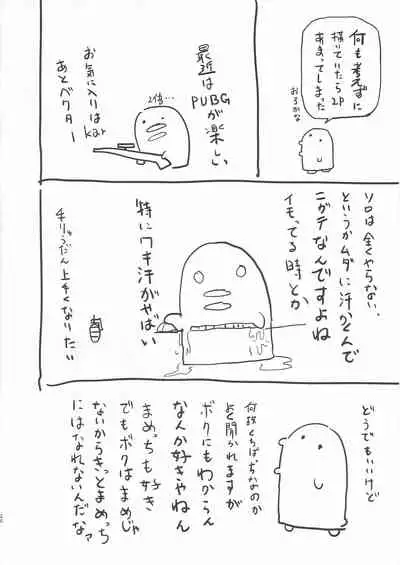 何も考えずに
描いていたら2P
あまってしまった
おろかな
最近は
PUBGが楽しい
2倍…
お気に入りはkar
あとベクター
ソロは全くやらない.
というかムダに汗かくんで
ニガテなんですよね
イモってる時とか
特にワキ汗がやばい
手りゅうだん上手くなりたい
どうでもいいけど
何故くちばしなのか
と聞かれますが
ボクにもわからん
なんか好きやねん
まめっちも好き
でもボクはまめじゃ
ないからきっとまめっち
にはなれないんだなァ